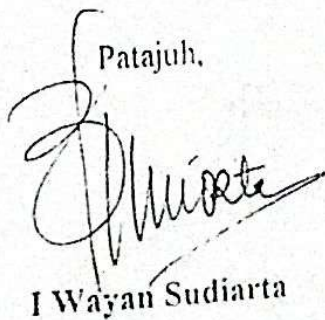 Patajuh,
I Wayan Sudiarta